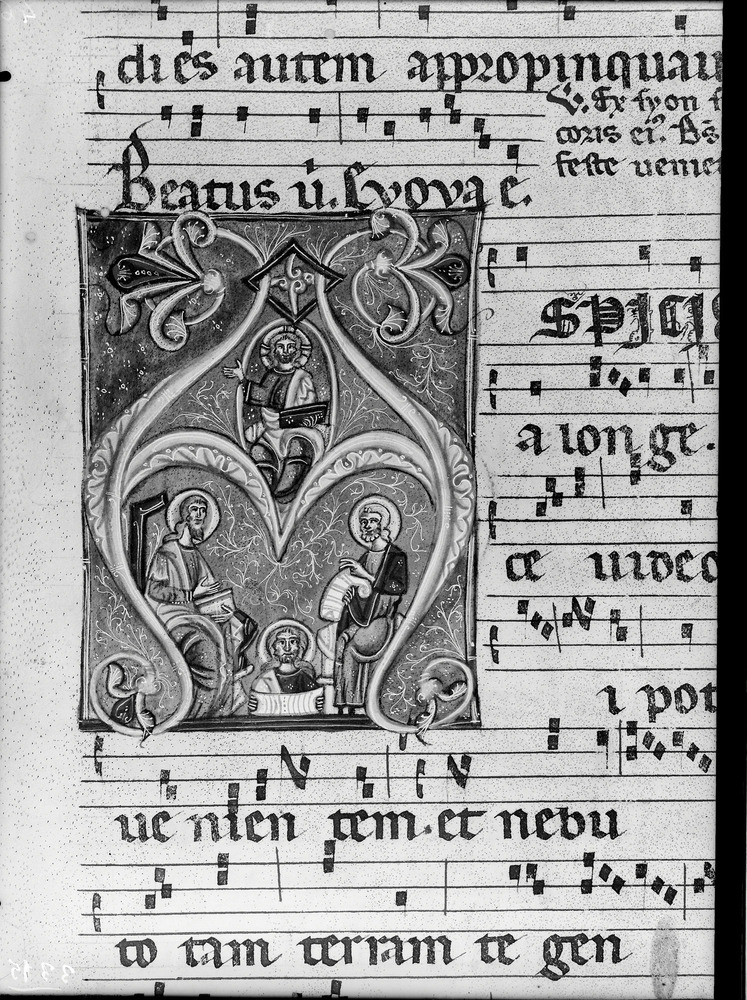 dies autem appropinquau
V. Ex syon s
coris ei9. Ds
feste uenie
Beatus u. Evova e.
SPICIE
a lon ge.
ce uideo
i pot
ue nien tem. et nebu
to tam terram te gen